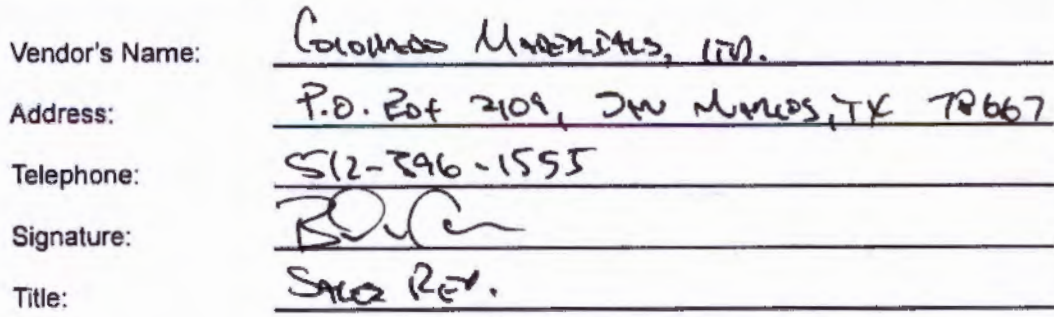 Vendor's Name: Colorado Materials, LTD.
Address: P.O. Box 2109, San Marcos, TX 78667
Telephone: 512-396-1555
Signature:
Title: Sales Rep.